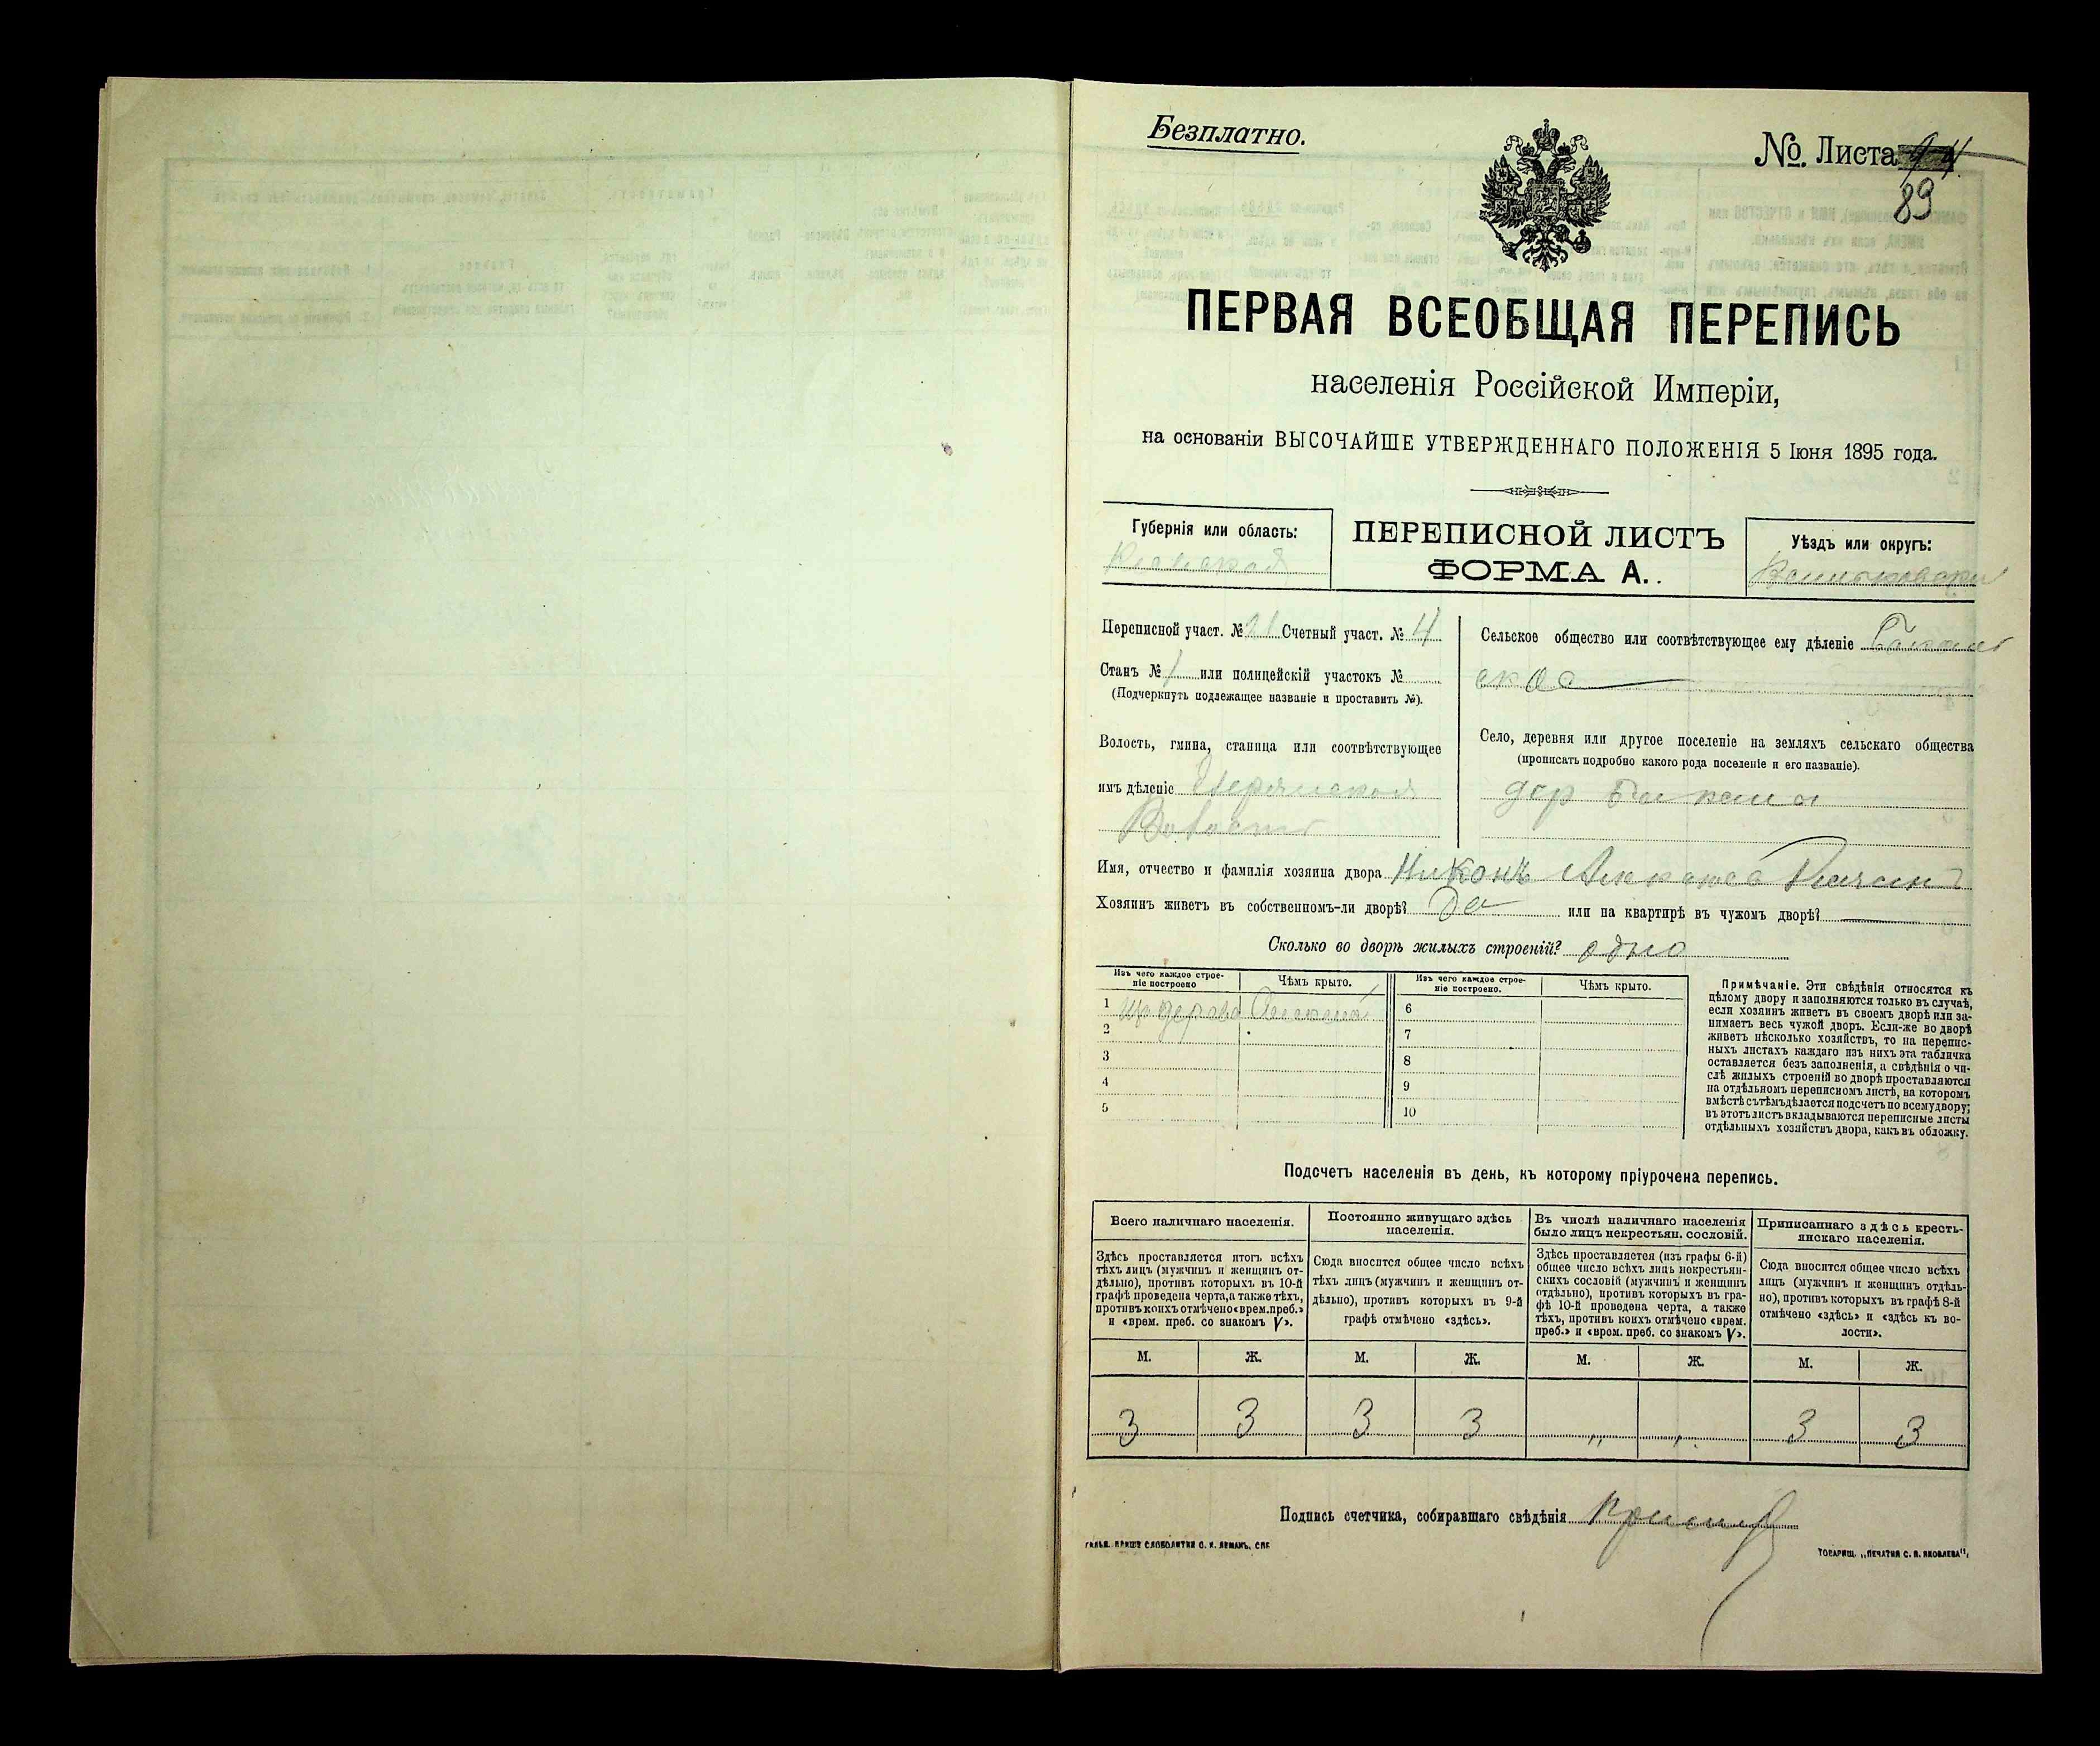 Безплатно.
№ Листа
89
ПЕРВАЯ ВСЕОБЩАЯ ПЕРЕПИСЬ
населенія Россійской Имперіи,
на основаніи ВЫСОЧАЙШЕ УТВЕРЖДЕННАГО ПОЛОЖЕНІЯ 5 Іюня 1895 года.
Губернія или область:
Кіевская
ПЕРЕПИСНОЙ ЛИСТЪ
ФОРМА А.
Уѣздъ или округъ:
Переписной участ. № 21 Счетный участ. № 4
Станъ № 1 или полицейскій участокъ №
(Подчеркнуть подлежащее названіе и проставить №).
Волость, гмина, станица или соотвѣтствующее
имъ дѣленіе
Волость
Сельское общество или соотвѣтствующее ему дѣленіе
ское
Село, деревня или другое поселеніе на земляхъ сельскаго общества
(прописать подробно какого рода поселеніе и его названіе).
дер
Имя, отчество и фамилія хозяина двора Никонъ
Хозяинъ живетъ въ собственномъ-ли дворѣ? Да или на квартирѣ въ чужомъ дворѣ?
Сколько во дворѣ жилыхъ строеній? одно
Изъ чего каждое строе-
ніе построено
Чѣмъ крыто.
Изъ чего каждое строе-
ніе построено.
Чѣмъ крыто.
1
2
3
4
5
6
7
8
9
10
Примѣчаніе. Эти свѣдѣнія относятся къ
цѣлому двору и заполняются только въ случаѣ,
если хозяинъ живетъ въ своемъ дворѣ или за-
нимаетъ весь чужой дворъ. Если-же во дворѣ
живетъ нѣсколько хозяйствъ, то на перепис-
ныхъ листахъ каждаго изъ нихъ эта табличка
оставляется безъ заполненія, а свѣдѣнія о чи-
слѣ жилыхъ строеній во дворѣ проставляются
на отдѣльномъ переписномъ листѣ, на которомъ
вмѣстѣ съ тѣмъ дѣлается подсчетъ по всему двору;
въ этотъ листъ вкладываются переписные листы
отдѣльныхъ хозяйствъ двора, какъ въ обложку.
Подсчетъ населенія въ день, къ которому пріурочена перепись.
Всего наличнаго населенія.
Здѣсь проставляется итогъ всѣхъ
тѣхъ лицъ (мужчинъ и женщинъ от-
дѣльно), противъ которыхъ въ 10-й
графѣ проведена черта, а также тѣхъ,
противъ коихъ отмѣчено «врем. преб.»
и «врем. преб. со знакомъ V».
Постоянно живущаго здѣсь
населенія.
Сюда вносится общее число всѣхъ
тѣхъ лицъ (мужчинъ и женщинъ от-
дѣльно), противъ которыхъ въ 9-й
графѣ отмѣчено «здѣсь».
Въ числѣ наличнаго населенія
было лицъ некрестьян. сословій.
Здѣсь проставляется (изъ графы 6-й)
общее число всѣхъ лицъ некрестьян-
скихъ сословій (мужчинъ и женщинъ
отдѣльно), противъ которыхъ въ гра-
фѣ 10-й проведена черта, а также
тѣхъ, противъ коихъ отмѣчено «врем.
преб.» и «врем. преб. со знакомъ V».
Приписаннаго здѣсь кресть-
янскаго населенія.
Сюда вносится общее число всѣхъ
лицъ (мужчинъ и женщинъ отдѣль-
но), противъ которыхъ въ графѣ 8-й
отмѣчено «здѣсь» и «здѣсь къ во-
лости».
М. Ж. М. Ж. М. Ж. М. Ж.
3 3 3 3 „ „ 3 3
Подпись счетчика, собиравшаго свѣдѣнія
ТОВАРИЩ. „ПЕЧАТНЯ С. П. ЯКОВЛЕВА“,